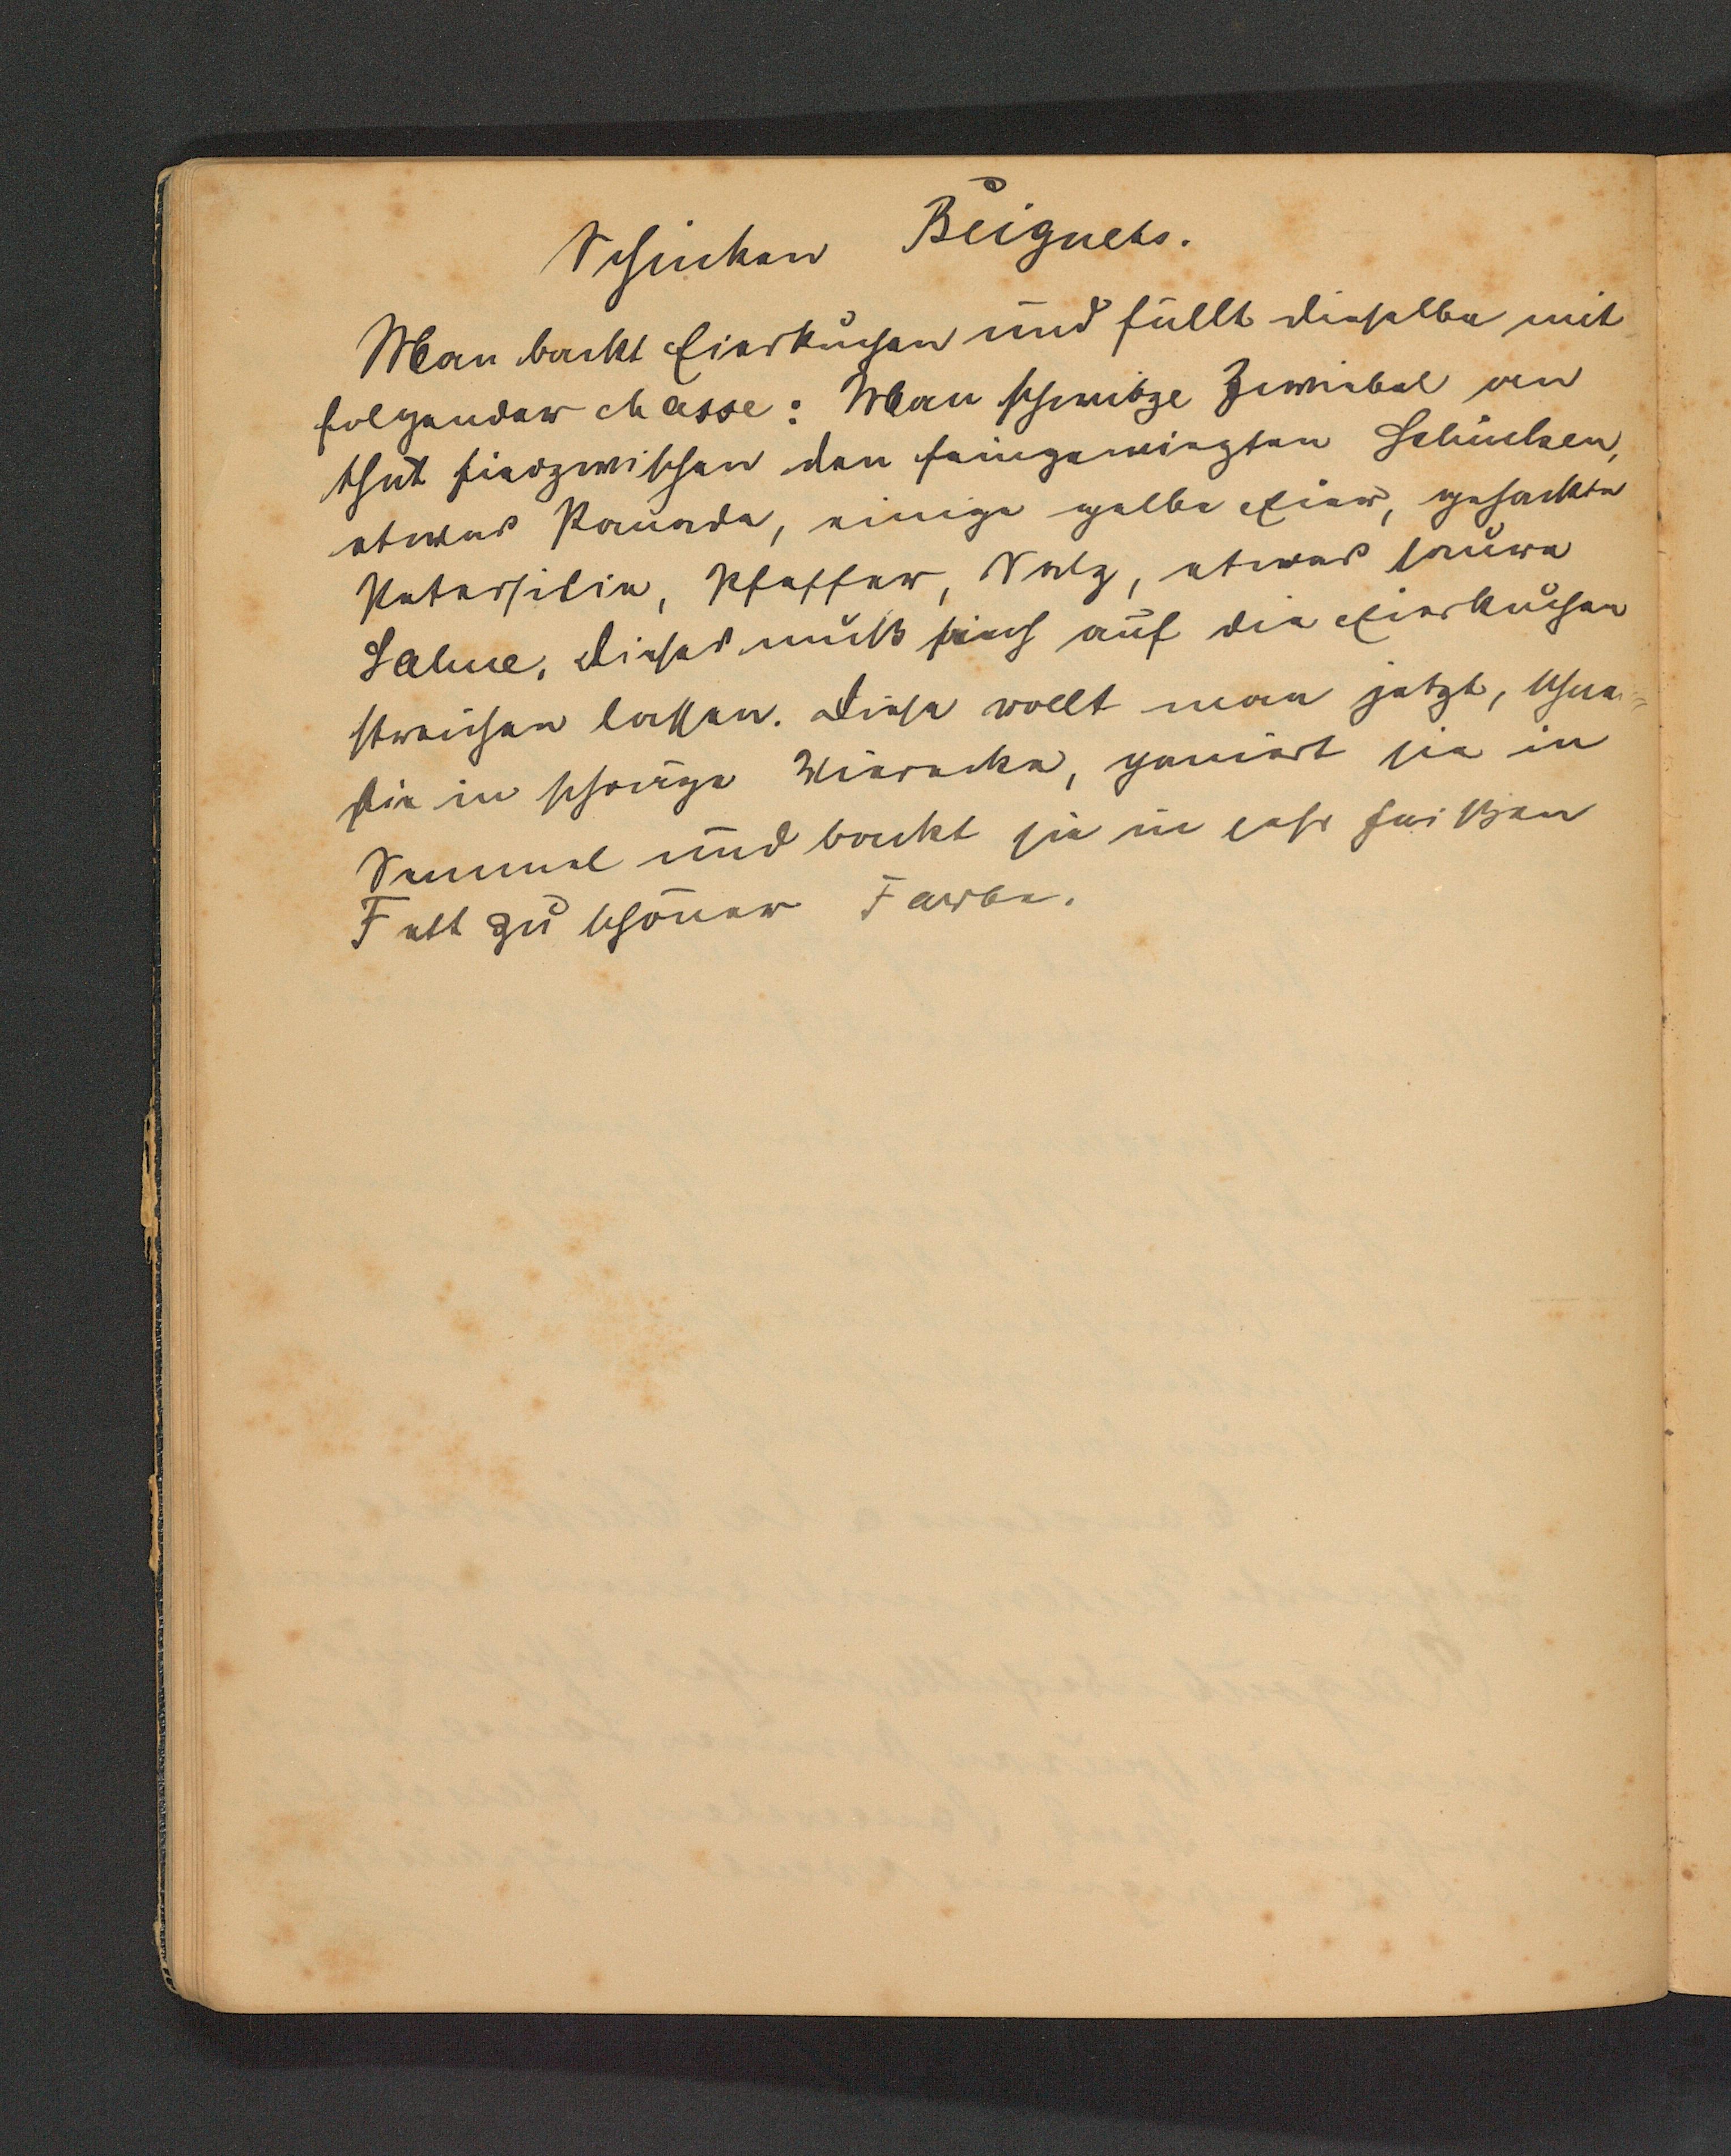 Schinken Beignets.
Man backt Eierkuchen und füllt dieselbe mit
folgender Masse: Man schwitze Zwiebel an
thut hierzwischen den feingewiegten Schinken,
etwas Panade, einige gelbe Eier, gehackte
Petersilie, Pfeffer, Salz, etwas saure
Sahne. Dieses muß sich auf die Eierkuchen
streichen lassen. Diese rollt man jetzt, schnei=
die in schräge Vierecke, paniert sie in
Semmel und backt sie in sehr heißen
Fett zu schöner Farbe.